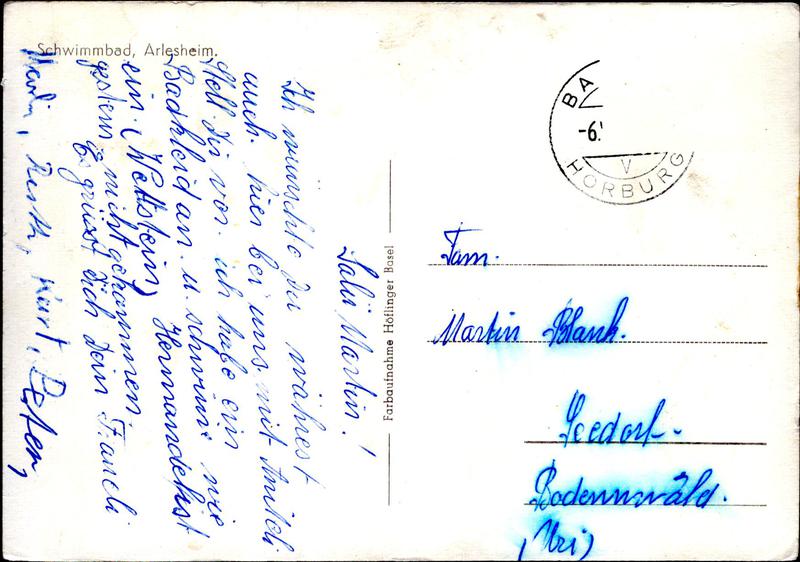 Schwimmbad, Arlesheim.
Salü Martin!
Ich wünschte du währest
auch hier bei uns mit
Stell dir vor ich habe ein
Badkleid an u. schwimm wie
ein (Wettstein)
gestern nicht gekommen
Es grüsst dich Dein
Ruth, Kurt, Peter,
Farbaufnahme Höflinger Basel
BA
-6.
V
HORBURG
Fam.
Martin Blank.
Seedorf.
Bodenwald.
(Uri)